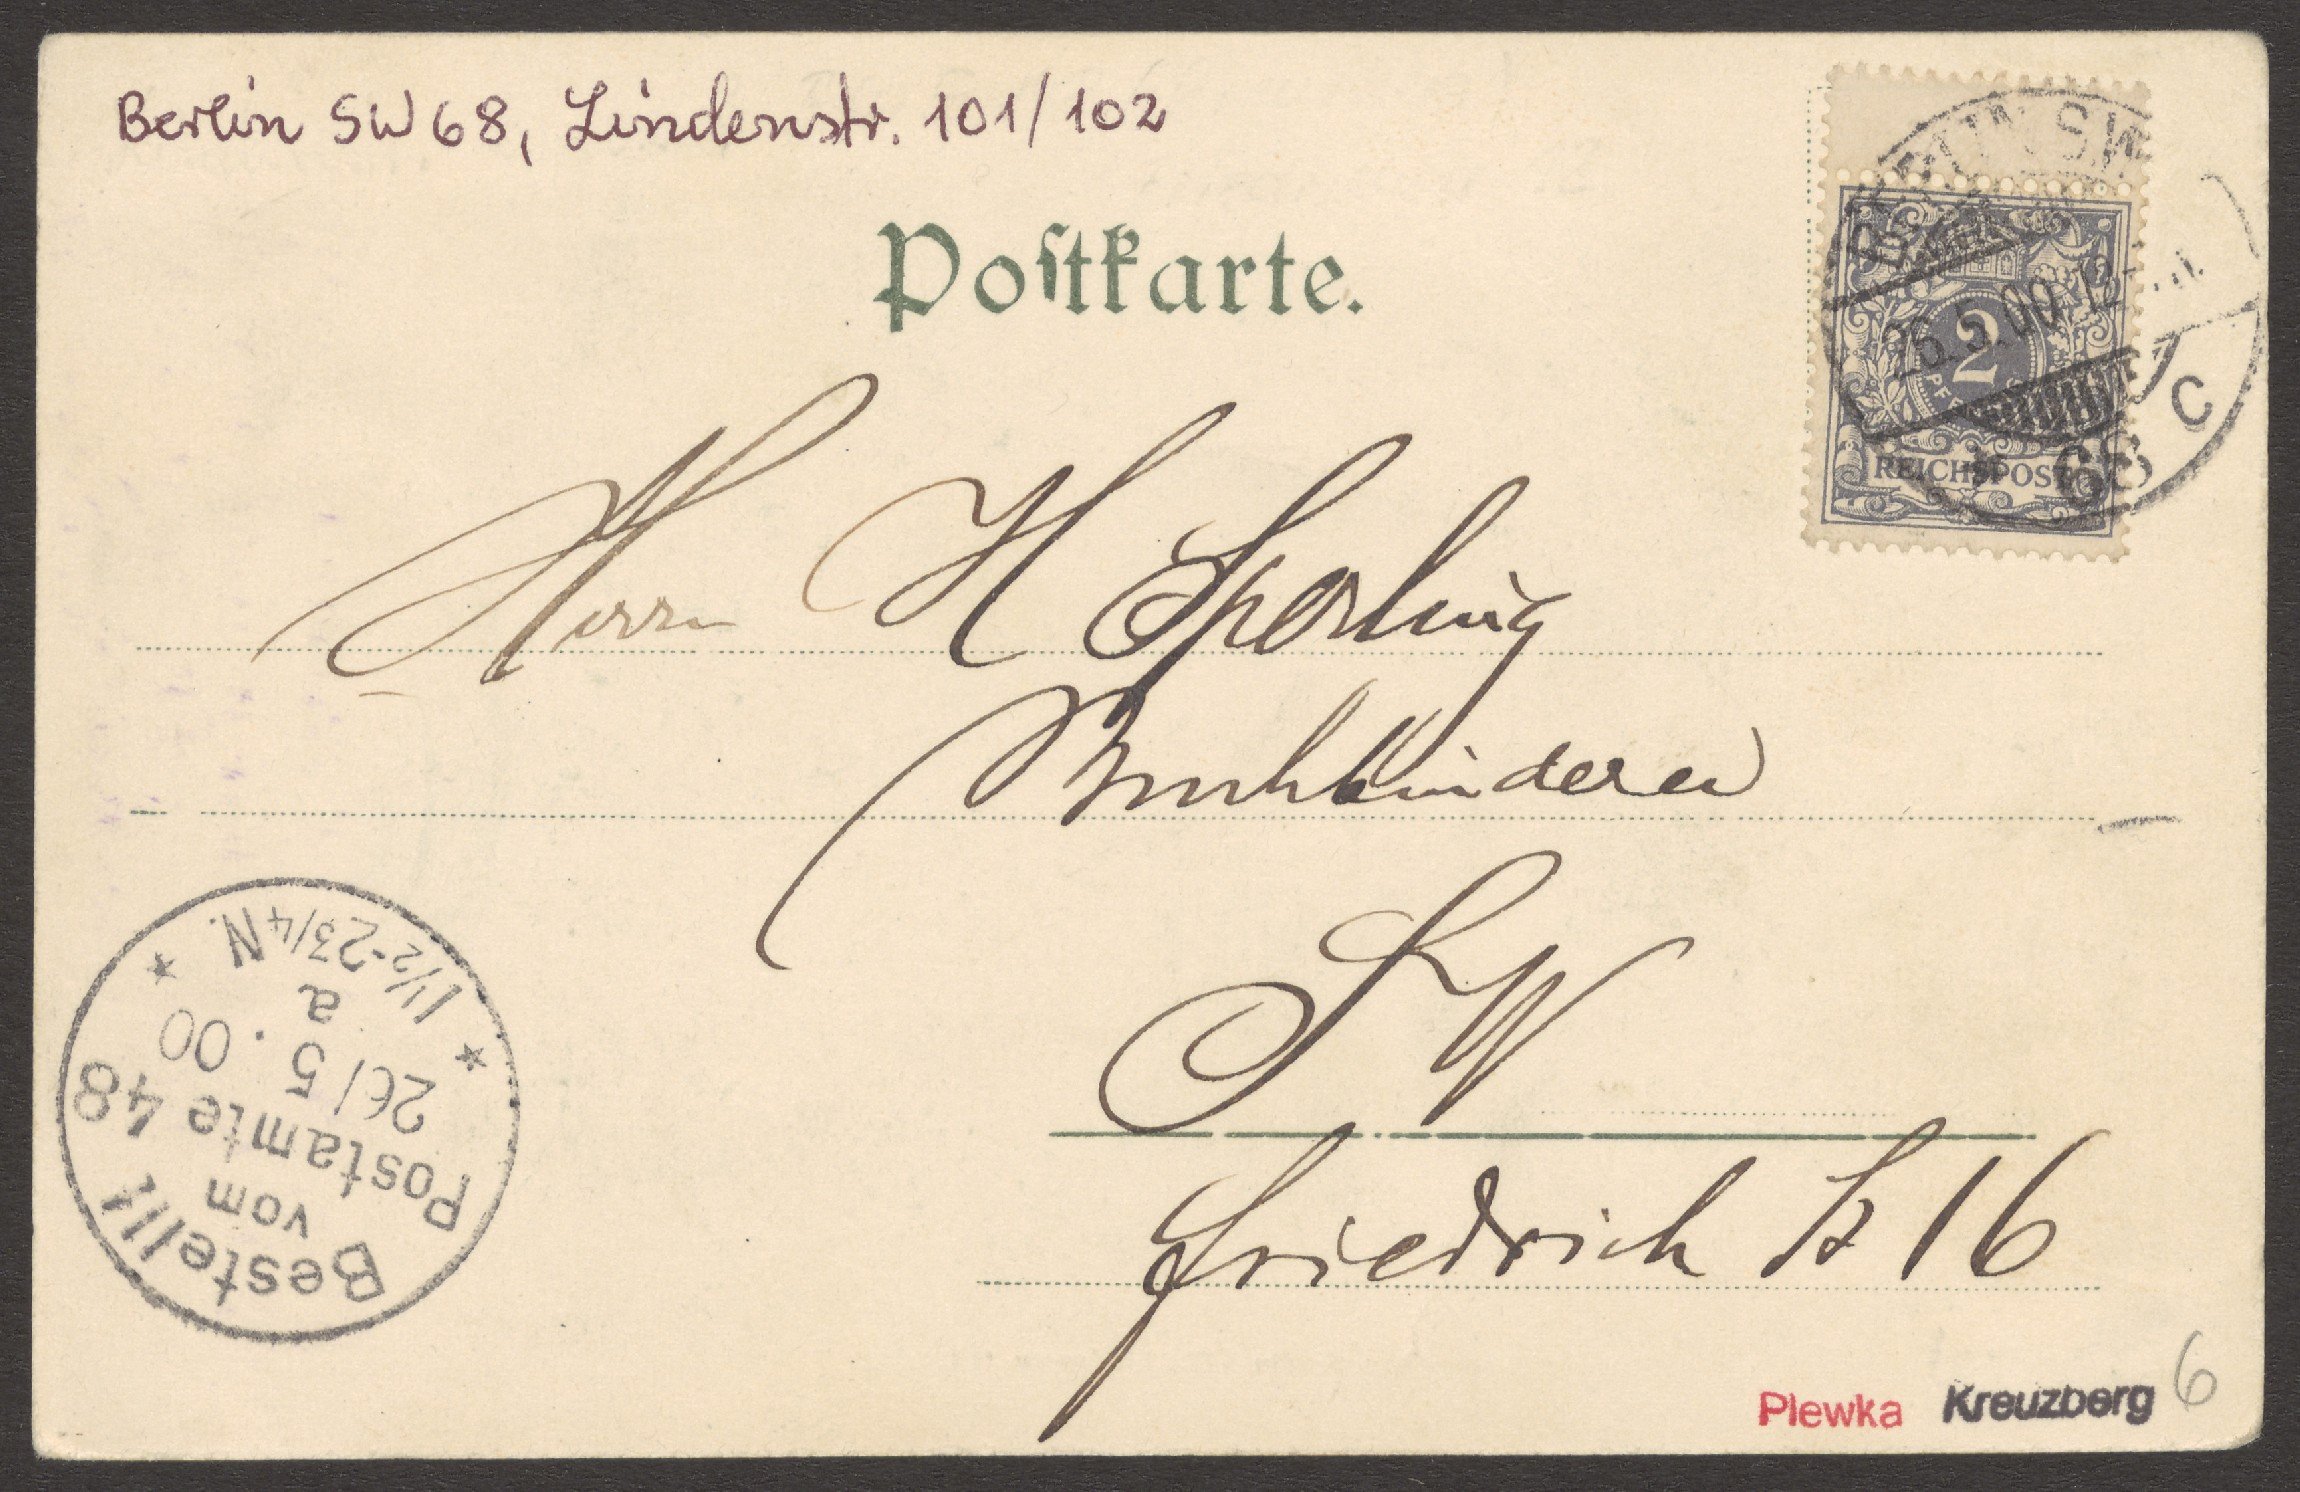 Berlin SW 68, Lindenstr. 101/102
Postkarte.
BERLIN SW
26.5.00.12
68 C
2
REICHSPOST
Herrn H Sperling
Buchbinderei
SW
Friedrich Str 16
Bestellt
vom
Postamte 48
26/5 .00
a
1½-2¾N.
Plewka Kreuzberg 6